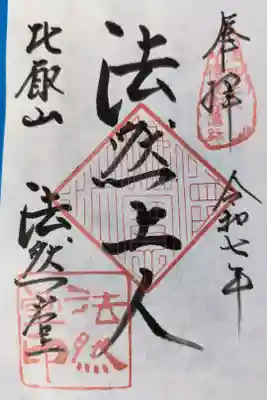 奉拝
令和七年
法然上人
比叡山
法然堂
法然
堂印